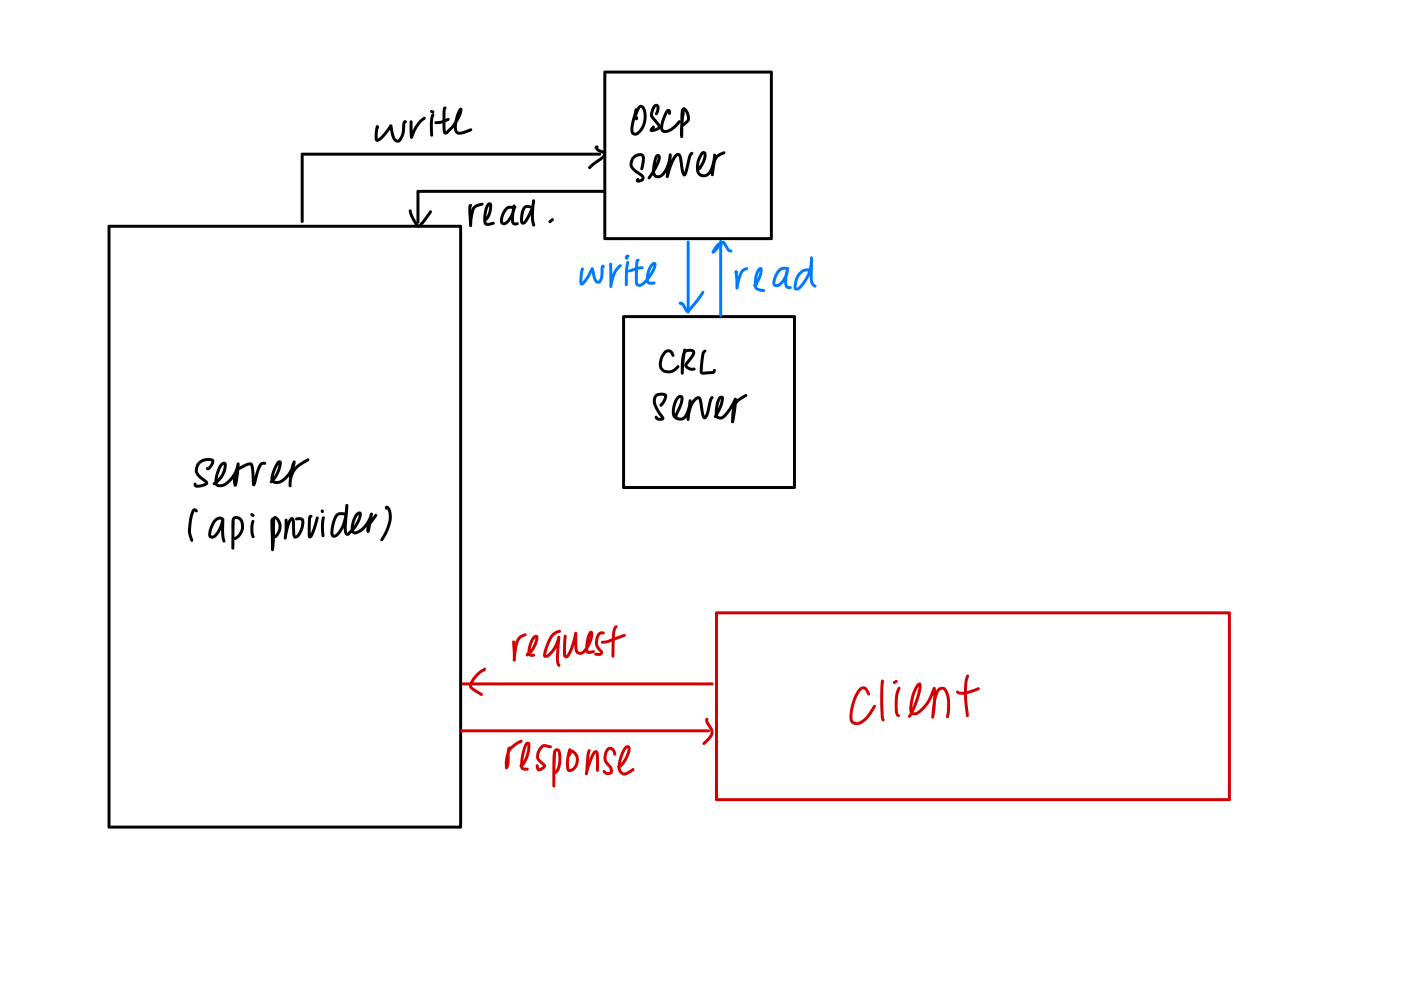 write
OSCP
server
read.
write
read
CRL
server
server
(api provider)
request
client
response